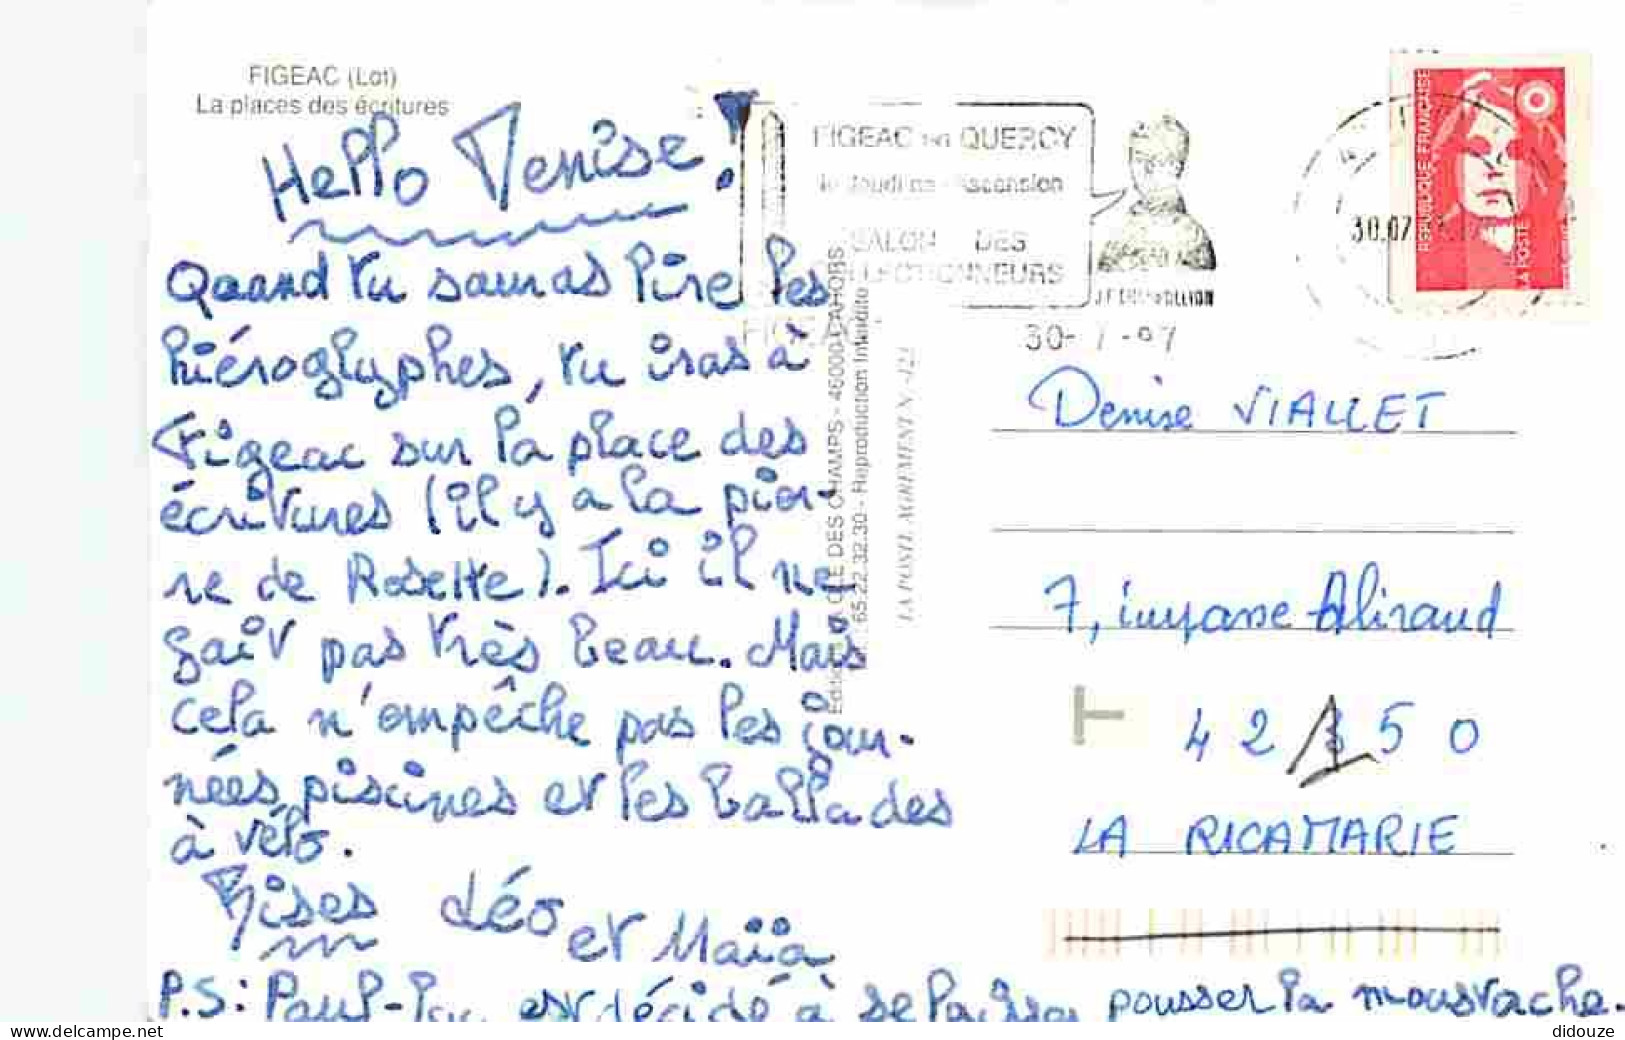 FIGEAC (Lot)
La places des écritures
Hello Denise!
Quand tu sauras lire les
hiéroglyphes, tu iras à
Figeac sur la place des
écritures (il y a la pier-
re de Rosette). Ici il ne
fait pas très beau. Mais
cela n'empêche pas les jour-
nées piscines et les ballades
à vélo.
Bises Léo
et Maïa
P.S: Paul-Luc est décidé à se laisser pousser la moustache.
FIGEAC en QUERCY
le Jeudi de l'Ascension
SALON DES
COLLECTIONNEURS
J.F. CHAMPOLLION
FIGEAC
30-7-97
30.07
REPUBLIQUE FRANÇAISE
LA POSTE
CLE DES CHAMPS - 46000 CAHORS
65.22.32.30 - Reproduction Interdite
LA POSTE AGREMENT N.
Denise VIALLET
7, impasse Aliraud
T
42 50
LA RICAMARIE
www.delcampe.net
didouze